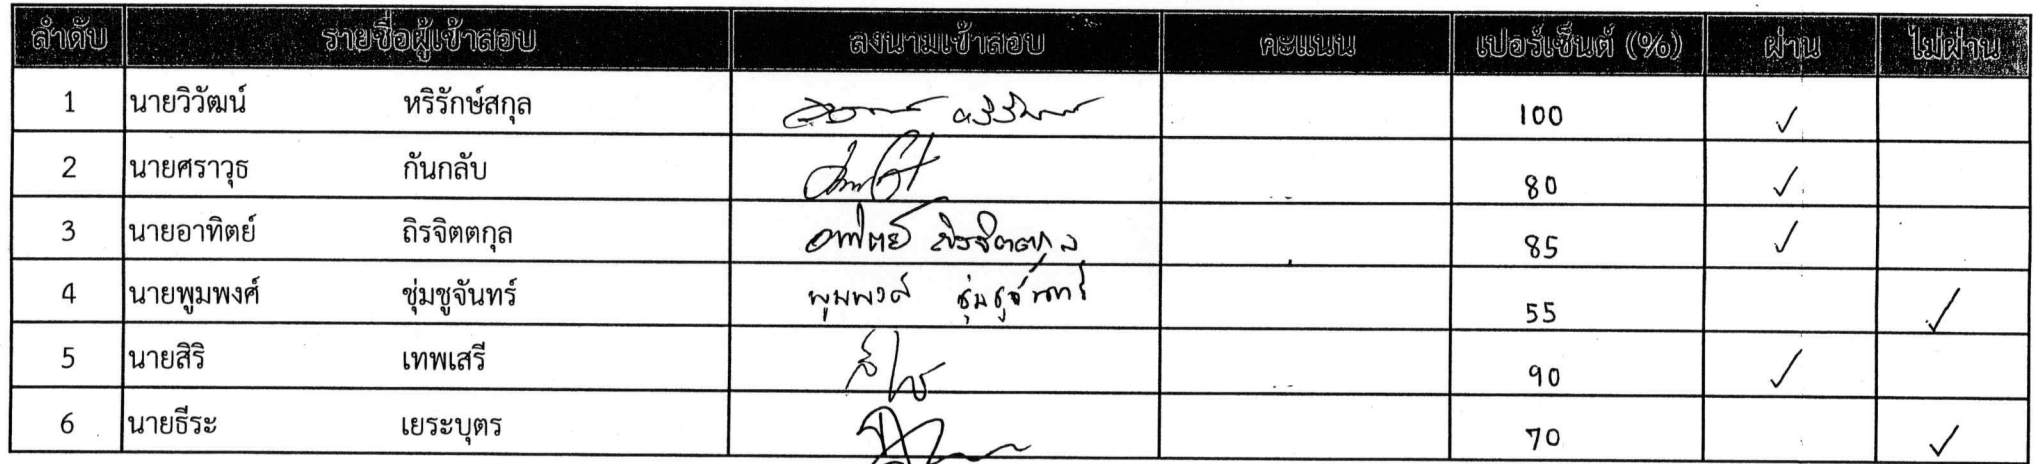 ลำดับ รายชื่อผู้เข้าสอบ ลงนามเข้าสอบ คะแนน เปอร์เซ็นต์ (%) ผ่าน ไม่ผ่าน
1 นายวิวัฒน์ หริรักษ์สกุล 100 ✓
2 นายศราวุธ กันกลับ 80 ✓
3 นายอาทิตย์ ถิรจิตตกุล อาทิตย์ ถิรจิตตกุล 85 ✓
4 นายพูมพงศ์ ชุ่มชูจันทร์ พูมพงศ์ ชุ่มชูจันทร์ 55 ✓
5 นายสิริ เทพเสรี 90 ✓
6 นายธีระ เยระบุตร 70 ✓